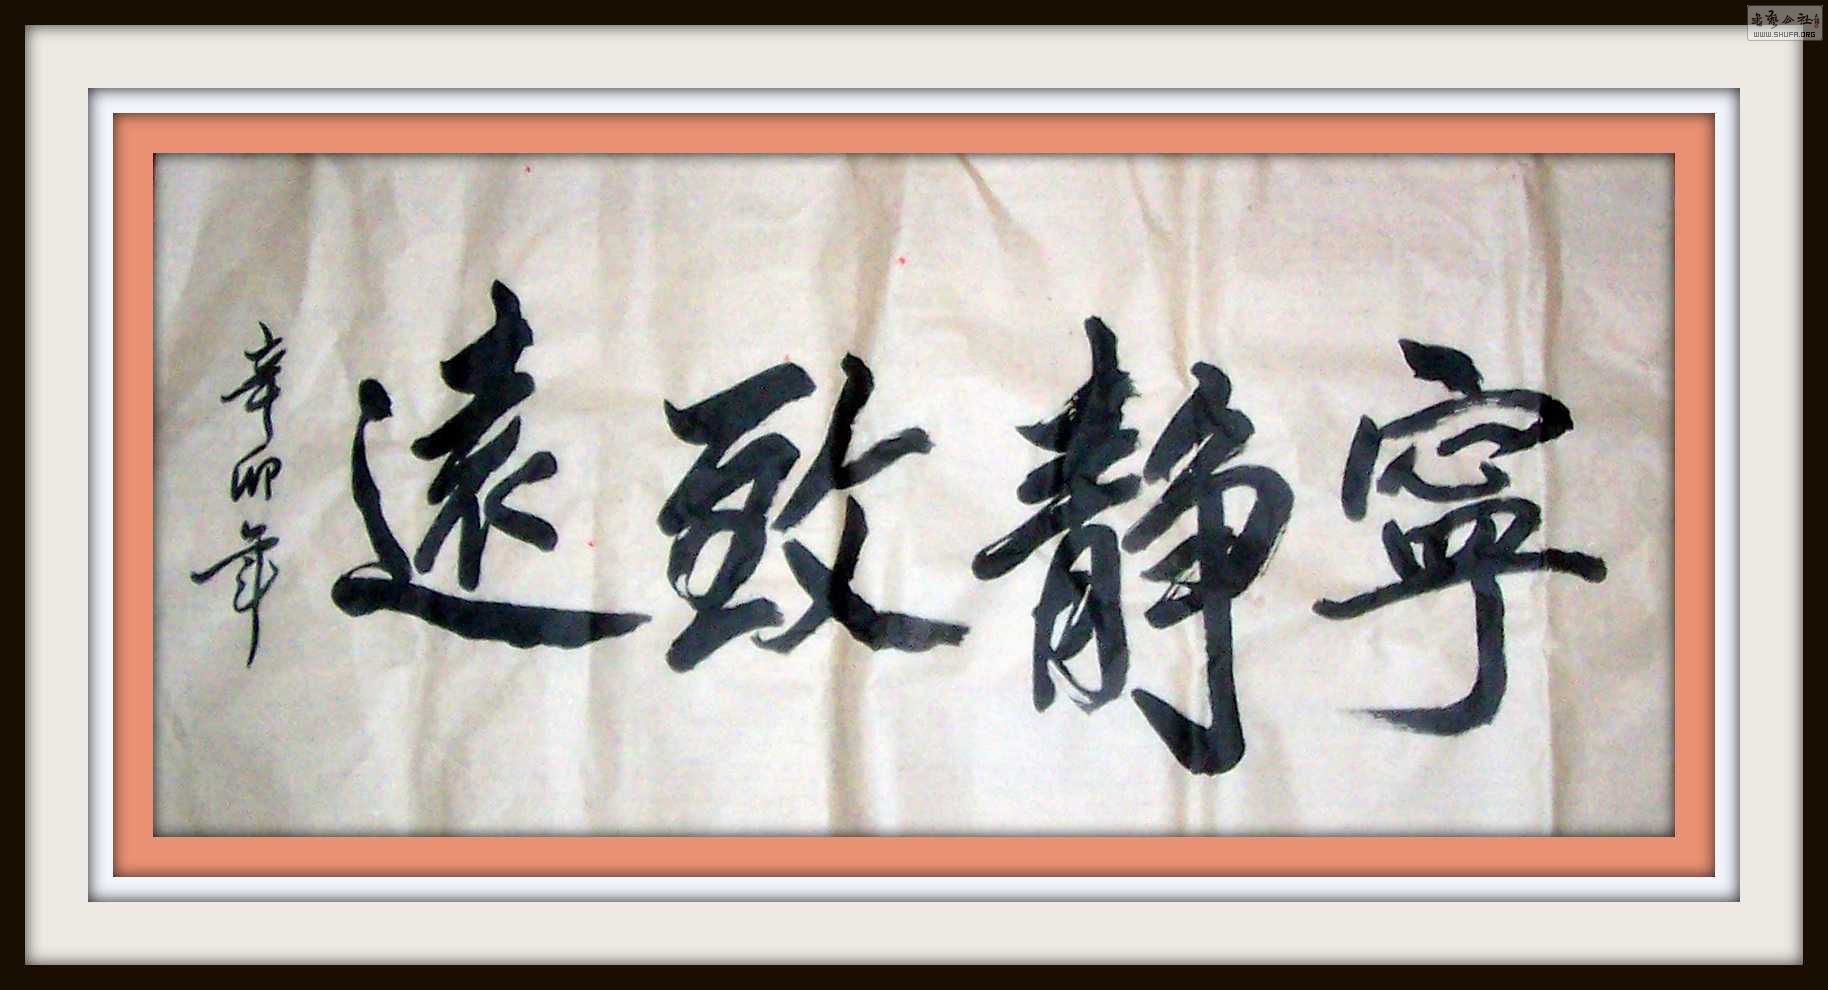 寧靜致遠
辛卯年
書藝公社
WWW.SHUFA.ORG